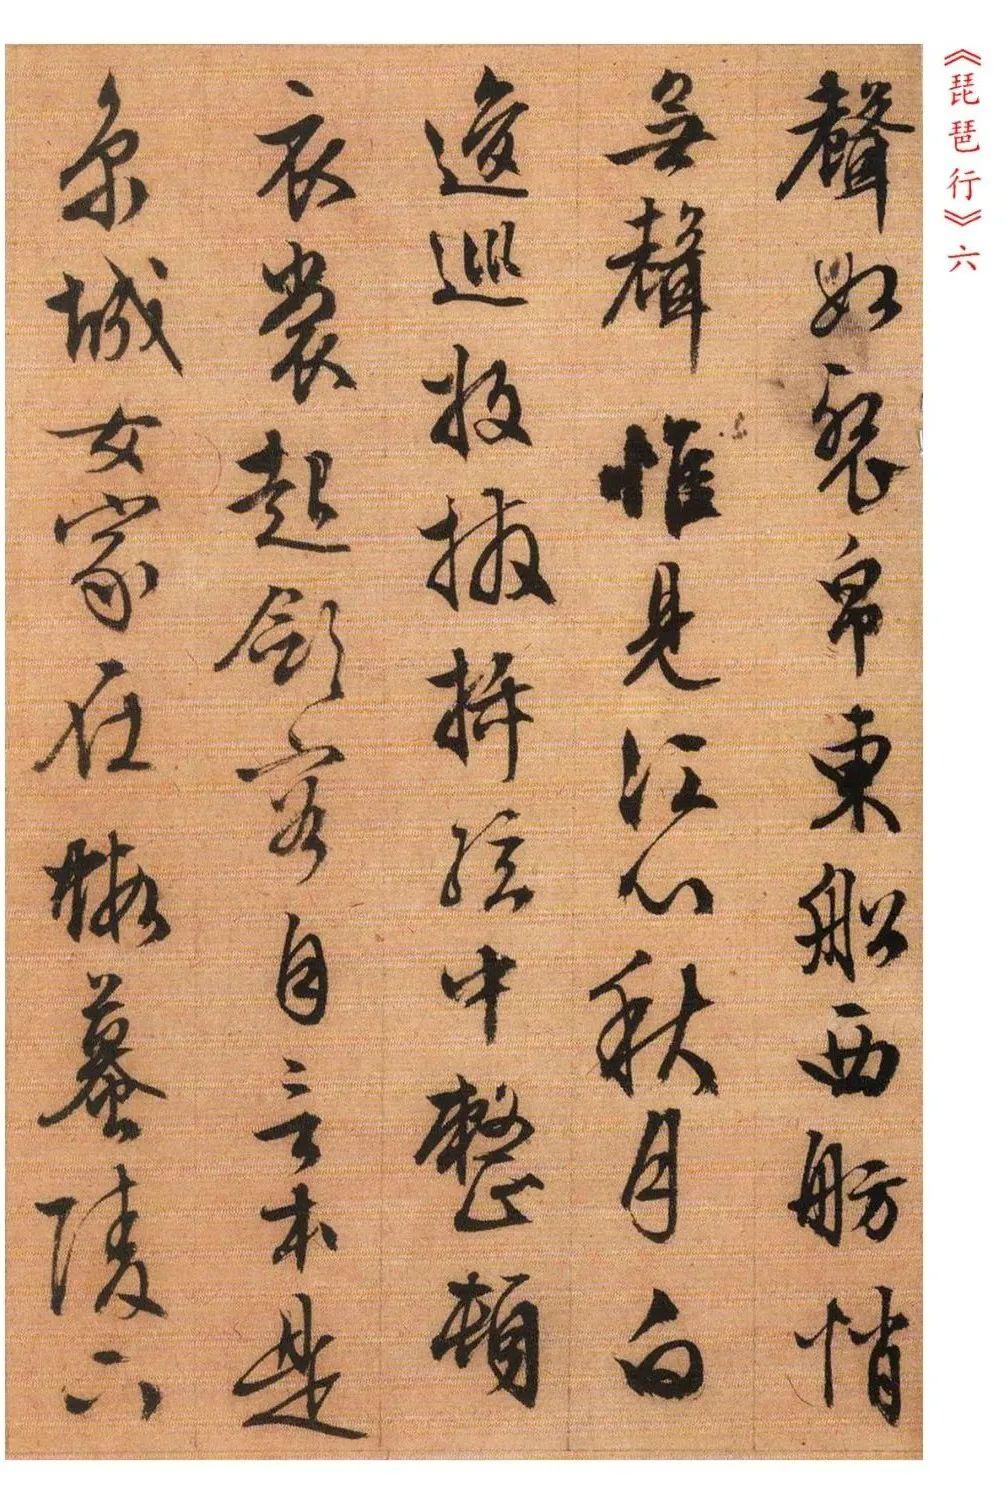 《琵琶行》六
聲如裂帛東船西舫悄
無聲惟見江心秋月白
逡巡放撥插絃中整頓
衣裳起斂容自言本是
京城女家在蝦蟇陵六